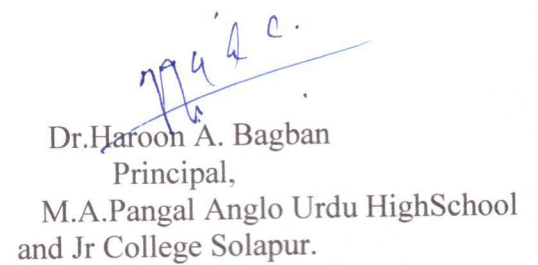 Dr.Haroon A. Bagban
Principal,
M.A.Pangal Anglo Urdu HighSchool
and Jr College Solapur.